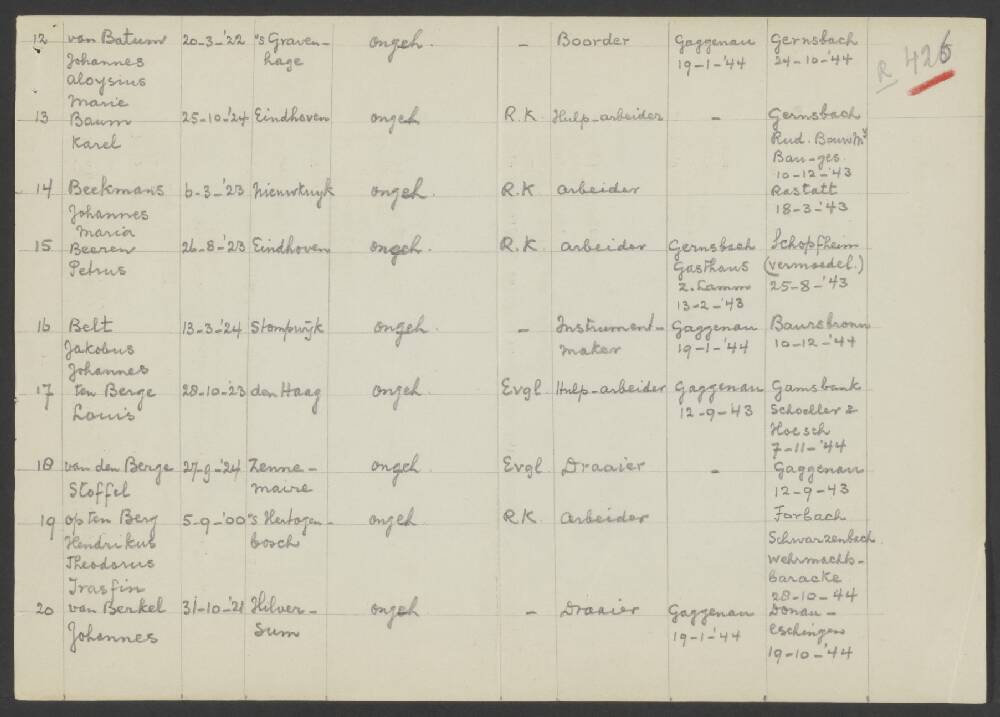 12 van Batum 20-3-'22 's Graven- ongeh. - Boorder Gaggenau Gernsbach
Johannes hage 19-1-'44 24-10-'44
Aloysius
Marie
R 426
13 Baum 25-10-'24 Eindhoven ongeh R.K Hulp-arbeider - Gernsbach
Karel Rud. Bauw Mr
Bau-ges.
10-12-'43
14 Beekmans 6-3-'23 Nieuwkuyk ongeh. R.K arbeider Rastatt
Johannes 18-3-'43
Maria
15 Beeren 26-8-'23 Eindhoven ongeh. R.K. arbeider Gernsbach Schopfheim
Petrus Gasthaus (vermoedel.)
z. Lamm 25-8-'43
13-2-'43
16 Belt 13-3-'24 Stompwijk ongeh. - Instrument- Gaggenau Baursbronn
Jakobus maker 19-1-'44 10-12-'44
Johannes
17 ten Berge 28-10-'23 den Haag ongeh. Evgl Hulp-arbeider Gaggenau Gamsbank
Louis 12-9-'43 Schoeller &
Hoesch
7-11-'44
18 van den Berge 27-9-'24 Zenne- ongeh. Evgl Draaier - Gaggenau
Stoffel maire 12-9-'43
19 op ten Berg 5-9-'00 's Hertogen- ongeh RK arbeider Forbach
Hendrikus bosch Schwarzenbach
Theodorus Wehrmachts-
Trasfin baracke
28-10-'44
20 van Berkel 31-10-'21 Hilver- ongeh - Draaier Gaggenau Donau-
Johannes sum 19-1-'44 eschingen
19-10-'44